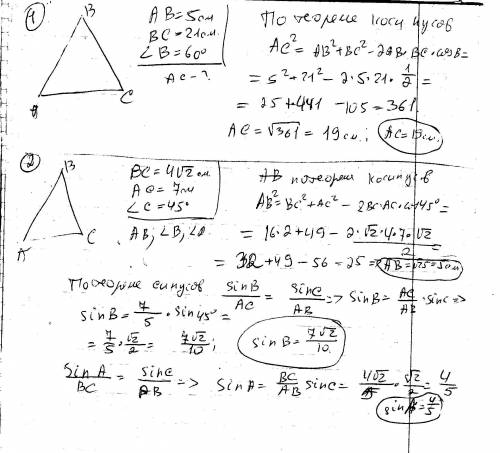 1
B
A
C
AB=5см
BC=21см.
∠B=60°
AC-?
По теореме косинусов
AC²= AB²+BC²-2AB·BC·cosB=
= 5²+21²-2·5·21·1/2=
= 25+441-105=361
AC=√361=19см; AC=19см.
2
B
A
C
BC=4√2 см
AC=7см
∠C=45°
AB, ∠B, ∠A
AB по теореме косинусов
AB²=BC²+AC²-2BC·AC·cos45°=
= 16·2+49-2·√2·4·7·√2/2=
= 32+49-56=25 AB=√25=5см
По теореме синусов sinB/AC = sinC/AB => sinB=AC/AB·sinC=>
sinB=7/5·sin45°=
= 7/5·√2/2= 7√2/10; sinB=7√2/10.
sinA/BC = sinC/AB => sinA=BC/AB sinC= 4√2/5·√2/2=4/5
sinA=4/5